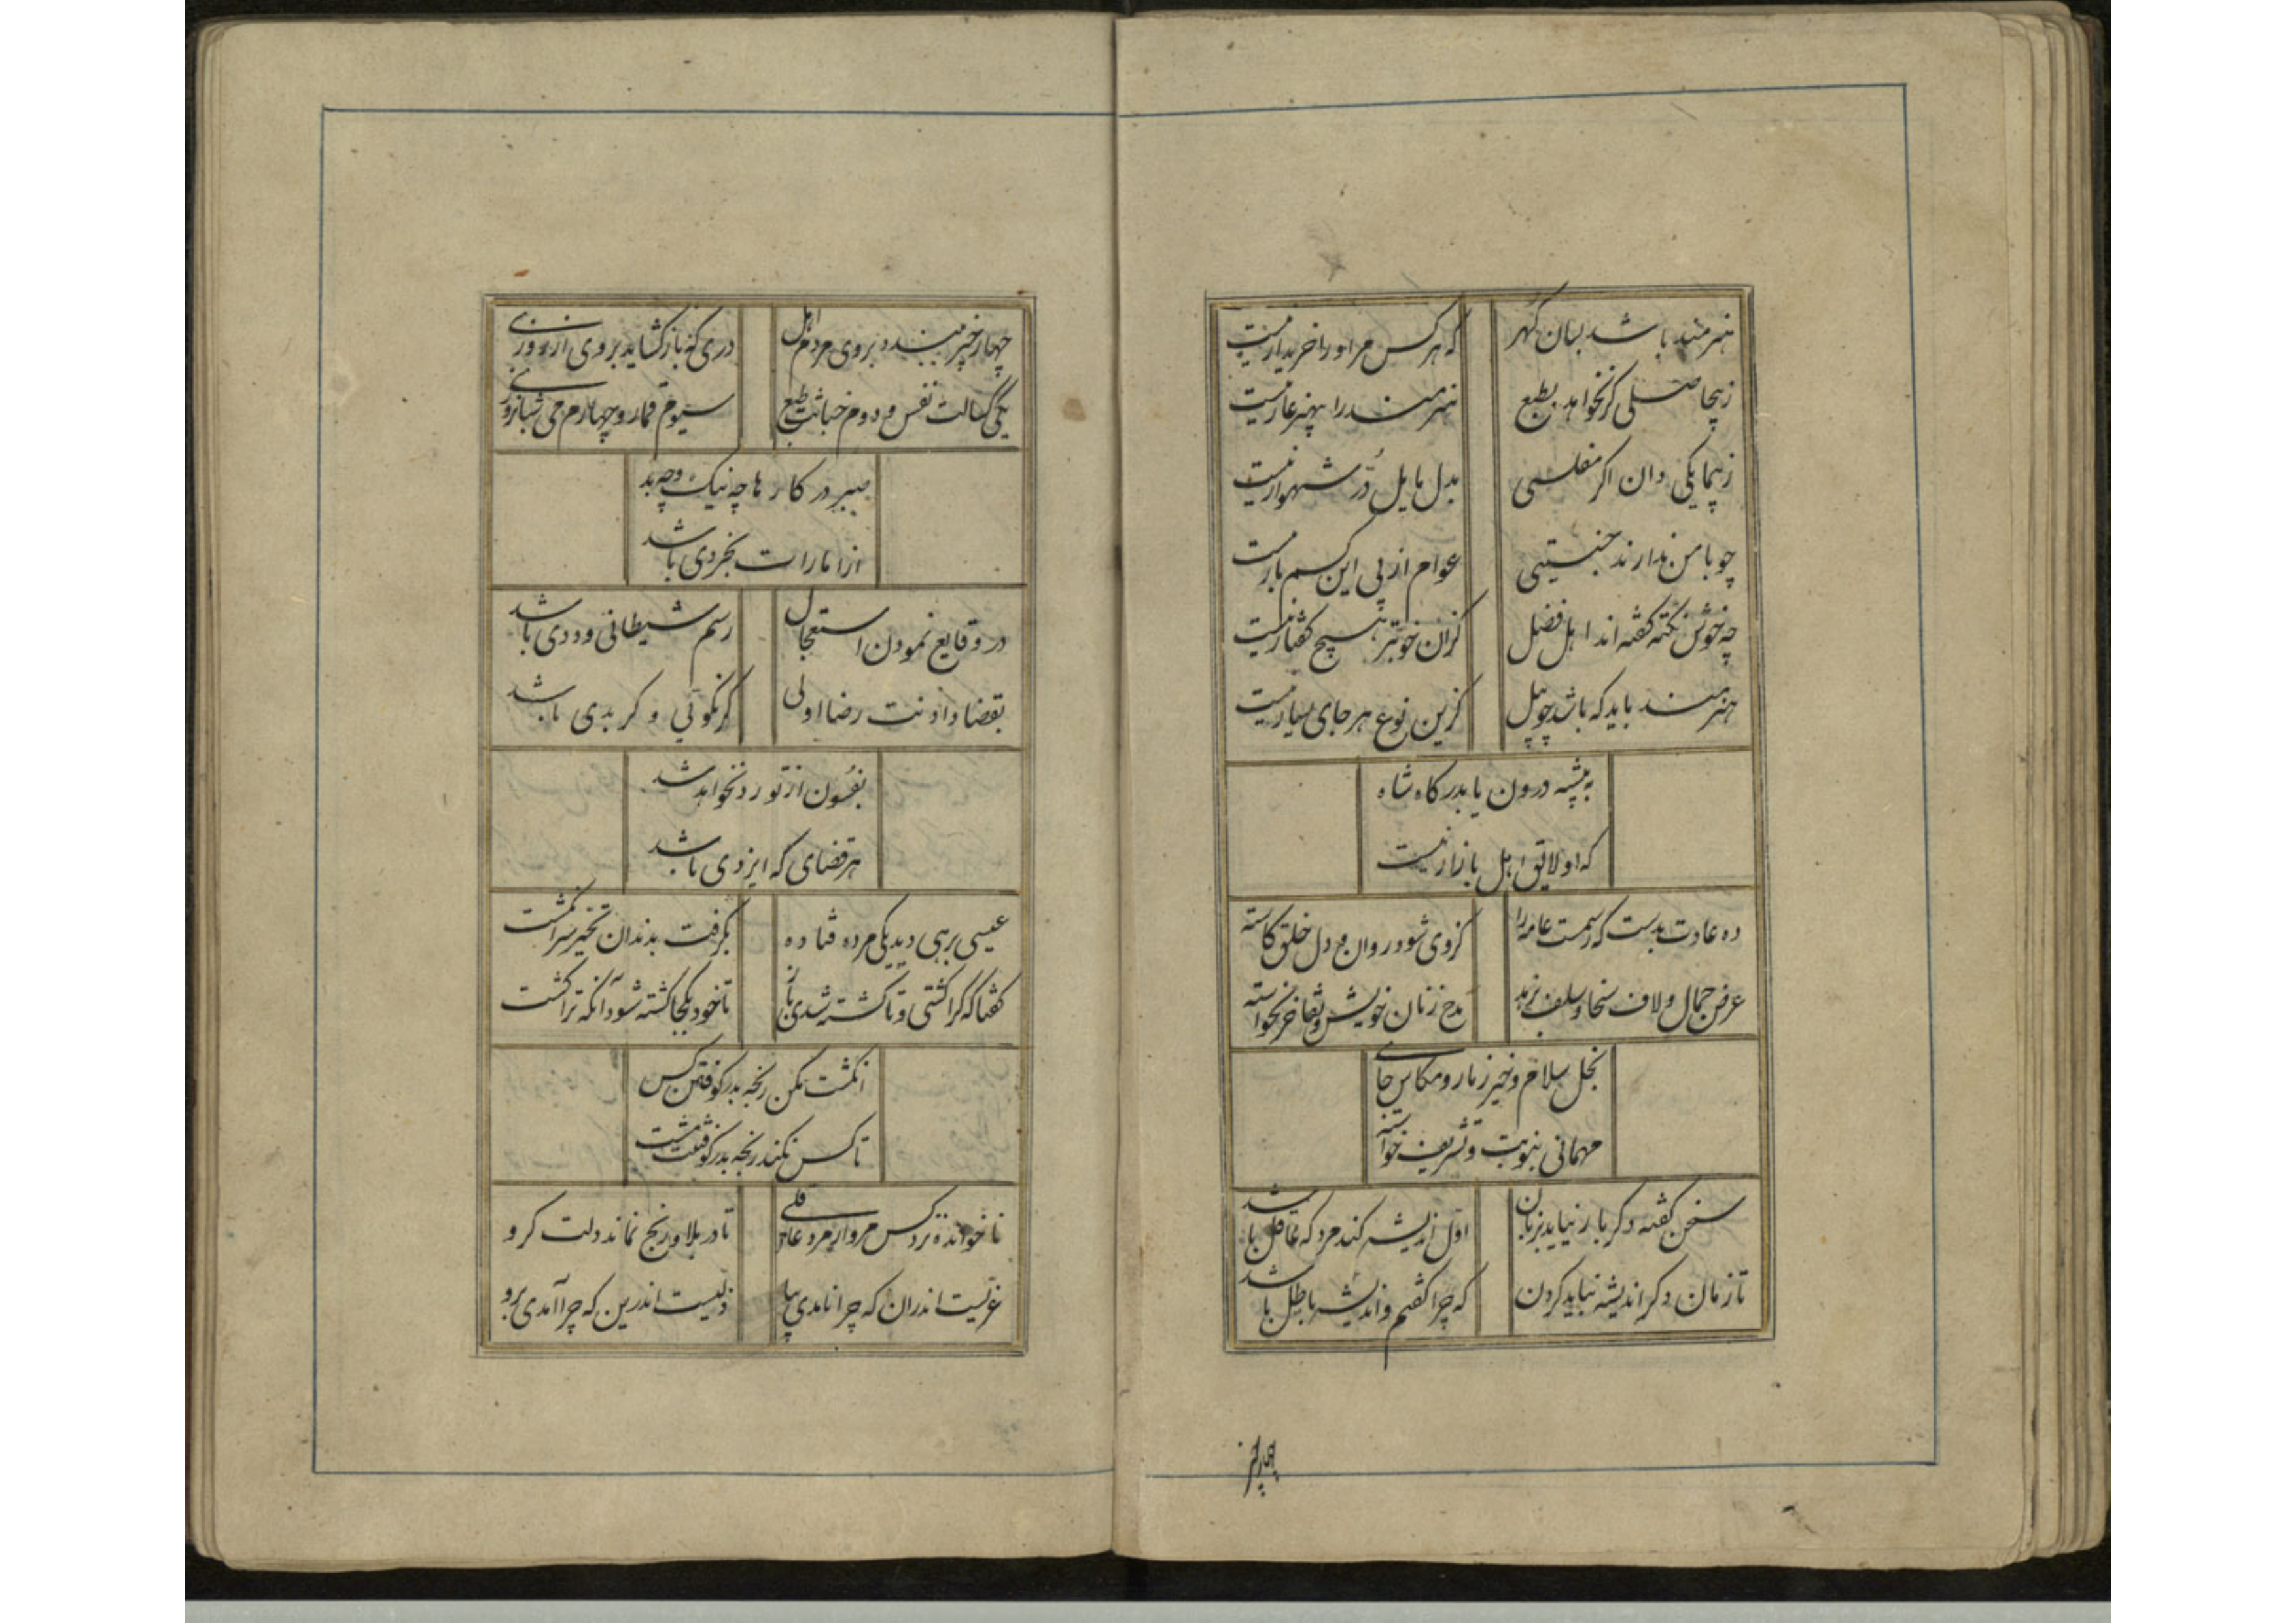 هنرمند باشد بسان گهر که هر کس مر او را خریدار نیست
ز بیحاصلی گر نخواهد بطبع هنرمند را بهنر عار نیست
ز بیمایکی دان اگر مفلسی بدل مایل دُرّ شهوار نیست
چو با من ندارند جنسیتی عوام از پی این کسم یار نیست
چه خوش نکته گفته اند اهل فضل کزان خوبتر هیچ گفتار نیست
هنرمند باید که باشد چو پیل کزین نوع هر جای بسیار نیست
به بیشه درون یا بدرگاه شاه
که او لایق اهل بازار نیست
ده عادت بدست که رسمست عامه را کز وی شود روان و دل خلق کاسته
عرض جمال و لاف سخا و سلف نبرد مدح زنان خویش و تفاخر نخواسته
بخل سلام و خیز زنار و مکاس جای
مهمانی بنوبت و تشریف خواسته
سخن گفته دگر باز نیاید بزبان اول اندیشه کند مرد که عاقل باشد
تا زمان دگر اندیشه نباید کردن که چرا گفتم و اندیشه باطل باشد
چهار چیز
چهار چیز ببندد بروی مردم اهل دری که باز گشاید بروی از روزی
یکی کسالت نفس و دوم خباثت طبع سیوم قمار و چهارم می شبانروزی
صبر در کارها چه نیک و چه بد
از امارات بخردی باشد
در وقایع نمودن استعجال رسم شیطانی و ددی باشد
بقضا دادنت رضا اولی گر نکوئی و گر بدی باشد
بفسون از تو رد نخواهد شد
هر قضای که ایزدی باشد
عیسی برهی دید یکی مرده فتاده بگرفت بدندان تحیر سر انگشت
گفتا که کرا کشتی و تا کشته شدی باز تا خود بکجا کشته شود آنکه ترا کشت
انگشت مکن رنجه بدر کوفتن کس
تا کس نکند رنجه بدر کوفتنت مشت
ناخوانده نزد کس مرو ار مرد عاقلی تا در بلا و رنج نماند دلت گرو
عزیست اندران که چرا نامدی بیا ذلیست اندرین که چرا آمدی برو